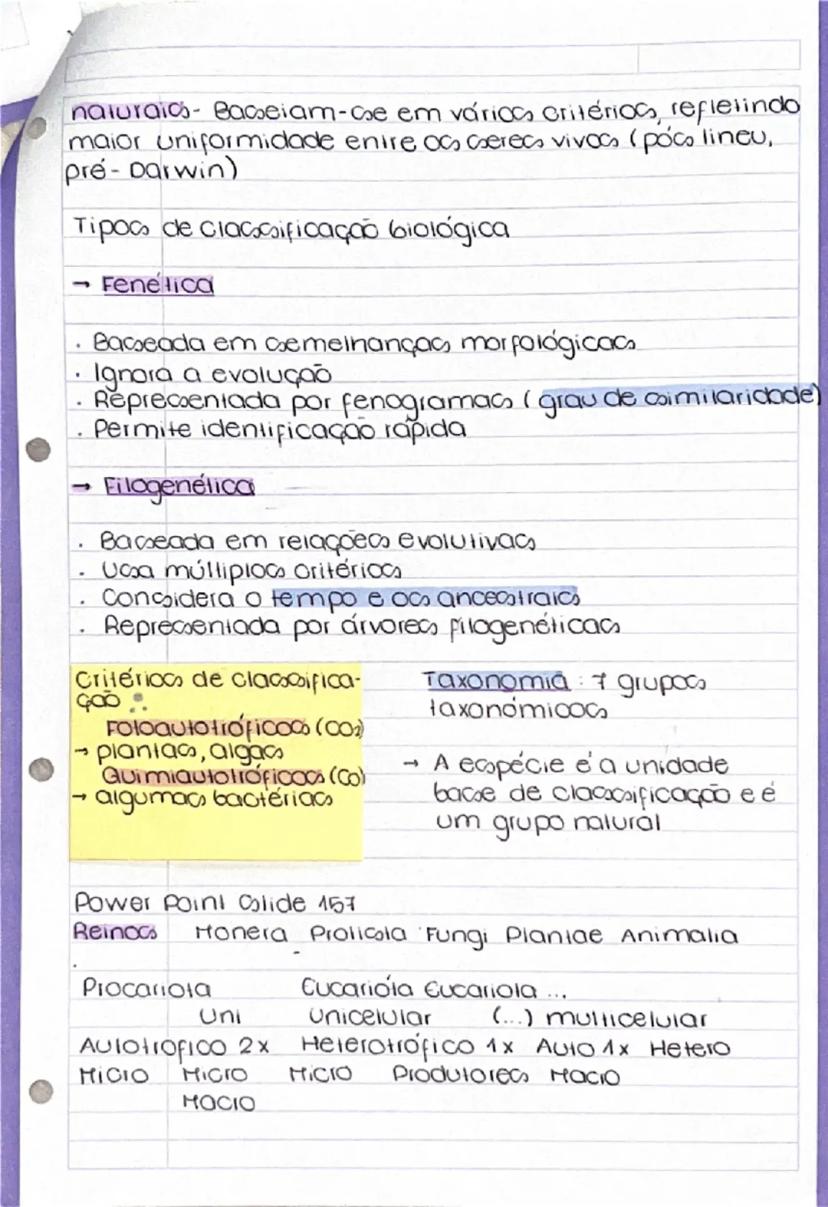 naturais - Baseiam-se em vários critérios, refletindo
maior uniformidade entre os seres vivos (pós lineu,
pré - Darwin)
Tipos de classificação biológica
→ Fenética
. Baseada em semelhanças morfológicas
. Ignora a evolução
. Representada por fenogramas (grau de similaridade)
. Permite identificação rápida
→ Filogenética
. Baseada em relações evolutivas
. Usa múltiplos critérios
. Considera o tempo e os ancestrais
. Representada por árvores filogenéticas
Critérios de classifica-
ção :
Fotoautotróficos (CO2)
→ plantas, algas
Quimiautotróficos (CO)
→ algumas bactérias
Taxonomia : 7 grupos
taxonómicos
→ A espécie é a unidade
base de classificação e é
um grupo natural
Power Point Slide 157
Reinos Monera Proticsta Fungi Plantae Animalia
Procariota Eucarióta Eucariota ...
Uni Unicelular (...) multicelular
Autotrofico 2x Heterotrófico 1x Auto 1x Hetero
Micro Micro Micro Produtores Macro
Macro